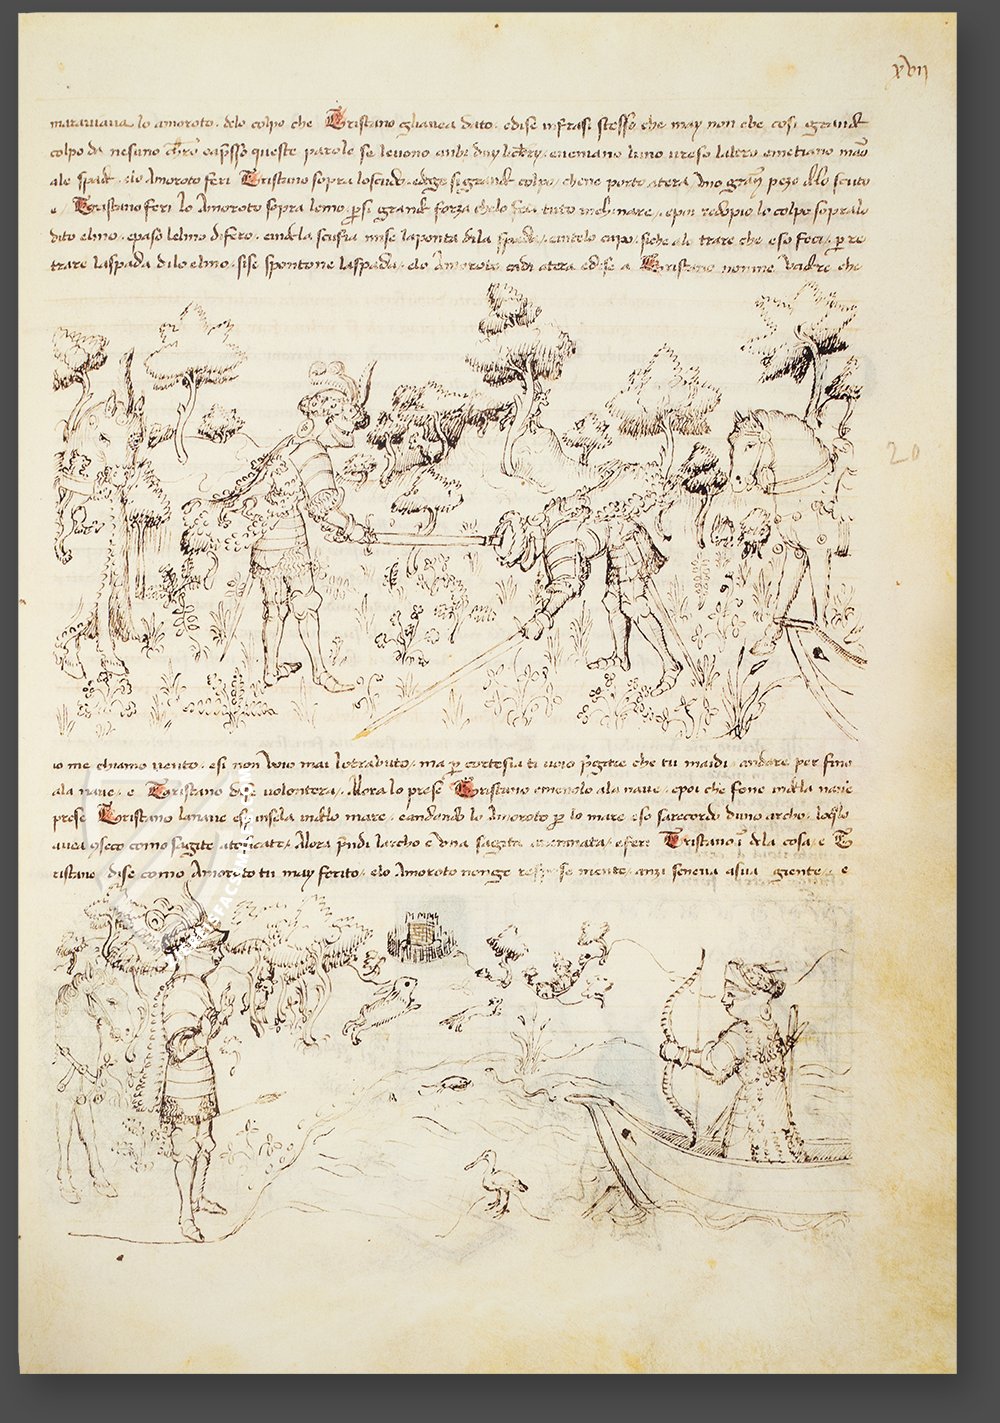 xvij
marauiaua lo amoroto . delo colpo che Tristano gliauea dato . edise infrasi stesso che may non ebe cosi grande
colpo da nesuno e queste parole se leuono anbi duy eueniano luno uerso laltro emetiano mão
ale spade . elo Amoroto feri Tristano sopra loscudo . edege si grande colpo / chene porto atera / uno gran pezo delo scuto
e / Tristano feri lo Amoroto sopra lemo / per si grande forza chelo feci tuto inchinare / epiu redopio lo colpo sopralo
dito elmo . epaso lelmo difero . eindela scufia mise laponta dila spada / cupo . siche alo trare che eso feci / per re
trare laspada dilo elmo . sise spontone laspada / elo Amoroto cadi atera . edise a Tristano che
20
io me chiamo uento . esi non uoio mai lotrabuto . ma per cortesia ti uoio pregare che tu maidi / andare per fino
ala naue . e Tristano dise uolontera / Alora lo prese Tristano emenolo ala naue . epoi che fone indela naue
prese Tristano lanaue insela indelo mare . eandando lo Amoroto per lo mare eso sarecordo duno archo . loqelo
auea seco como sagite atosicate / Alora prendi larcho e una sagita / eferi Tristano dela cosa . e T
ristano dise como Amoroto tu may ferito / elo Amoroto nonge respose niente . anzi seneua asua giente . e